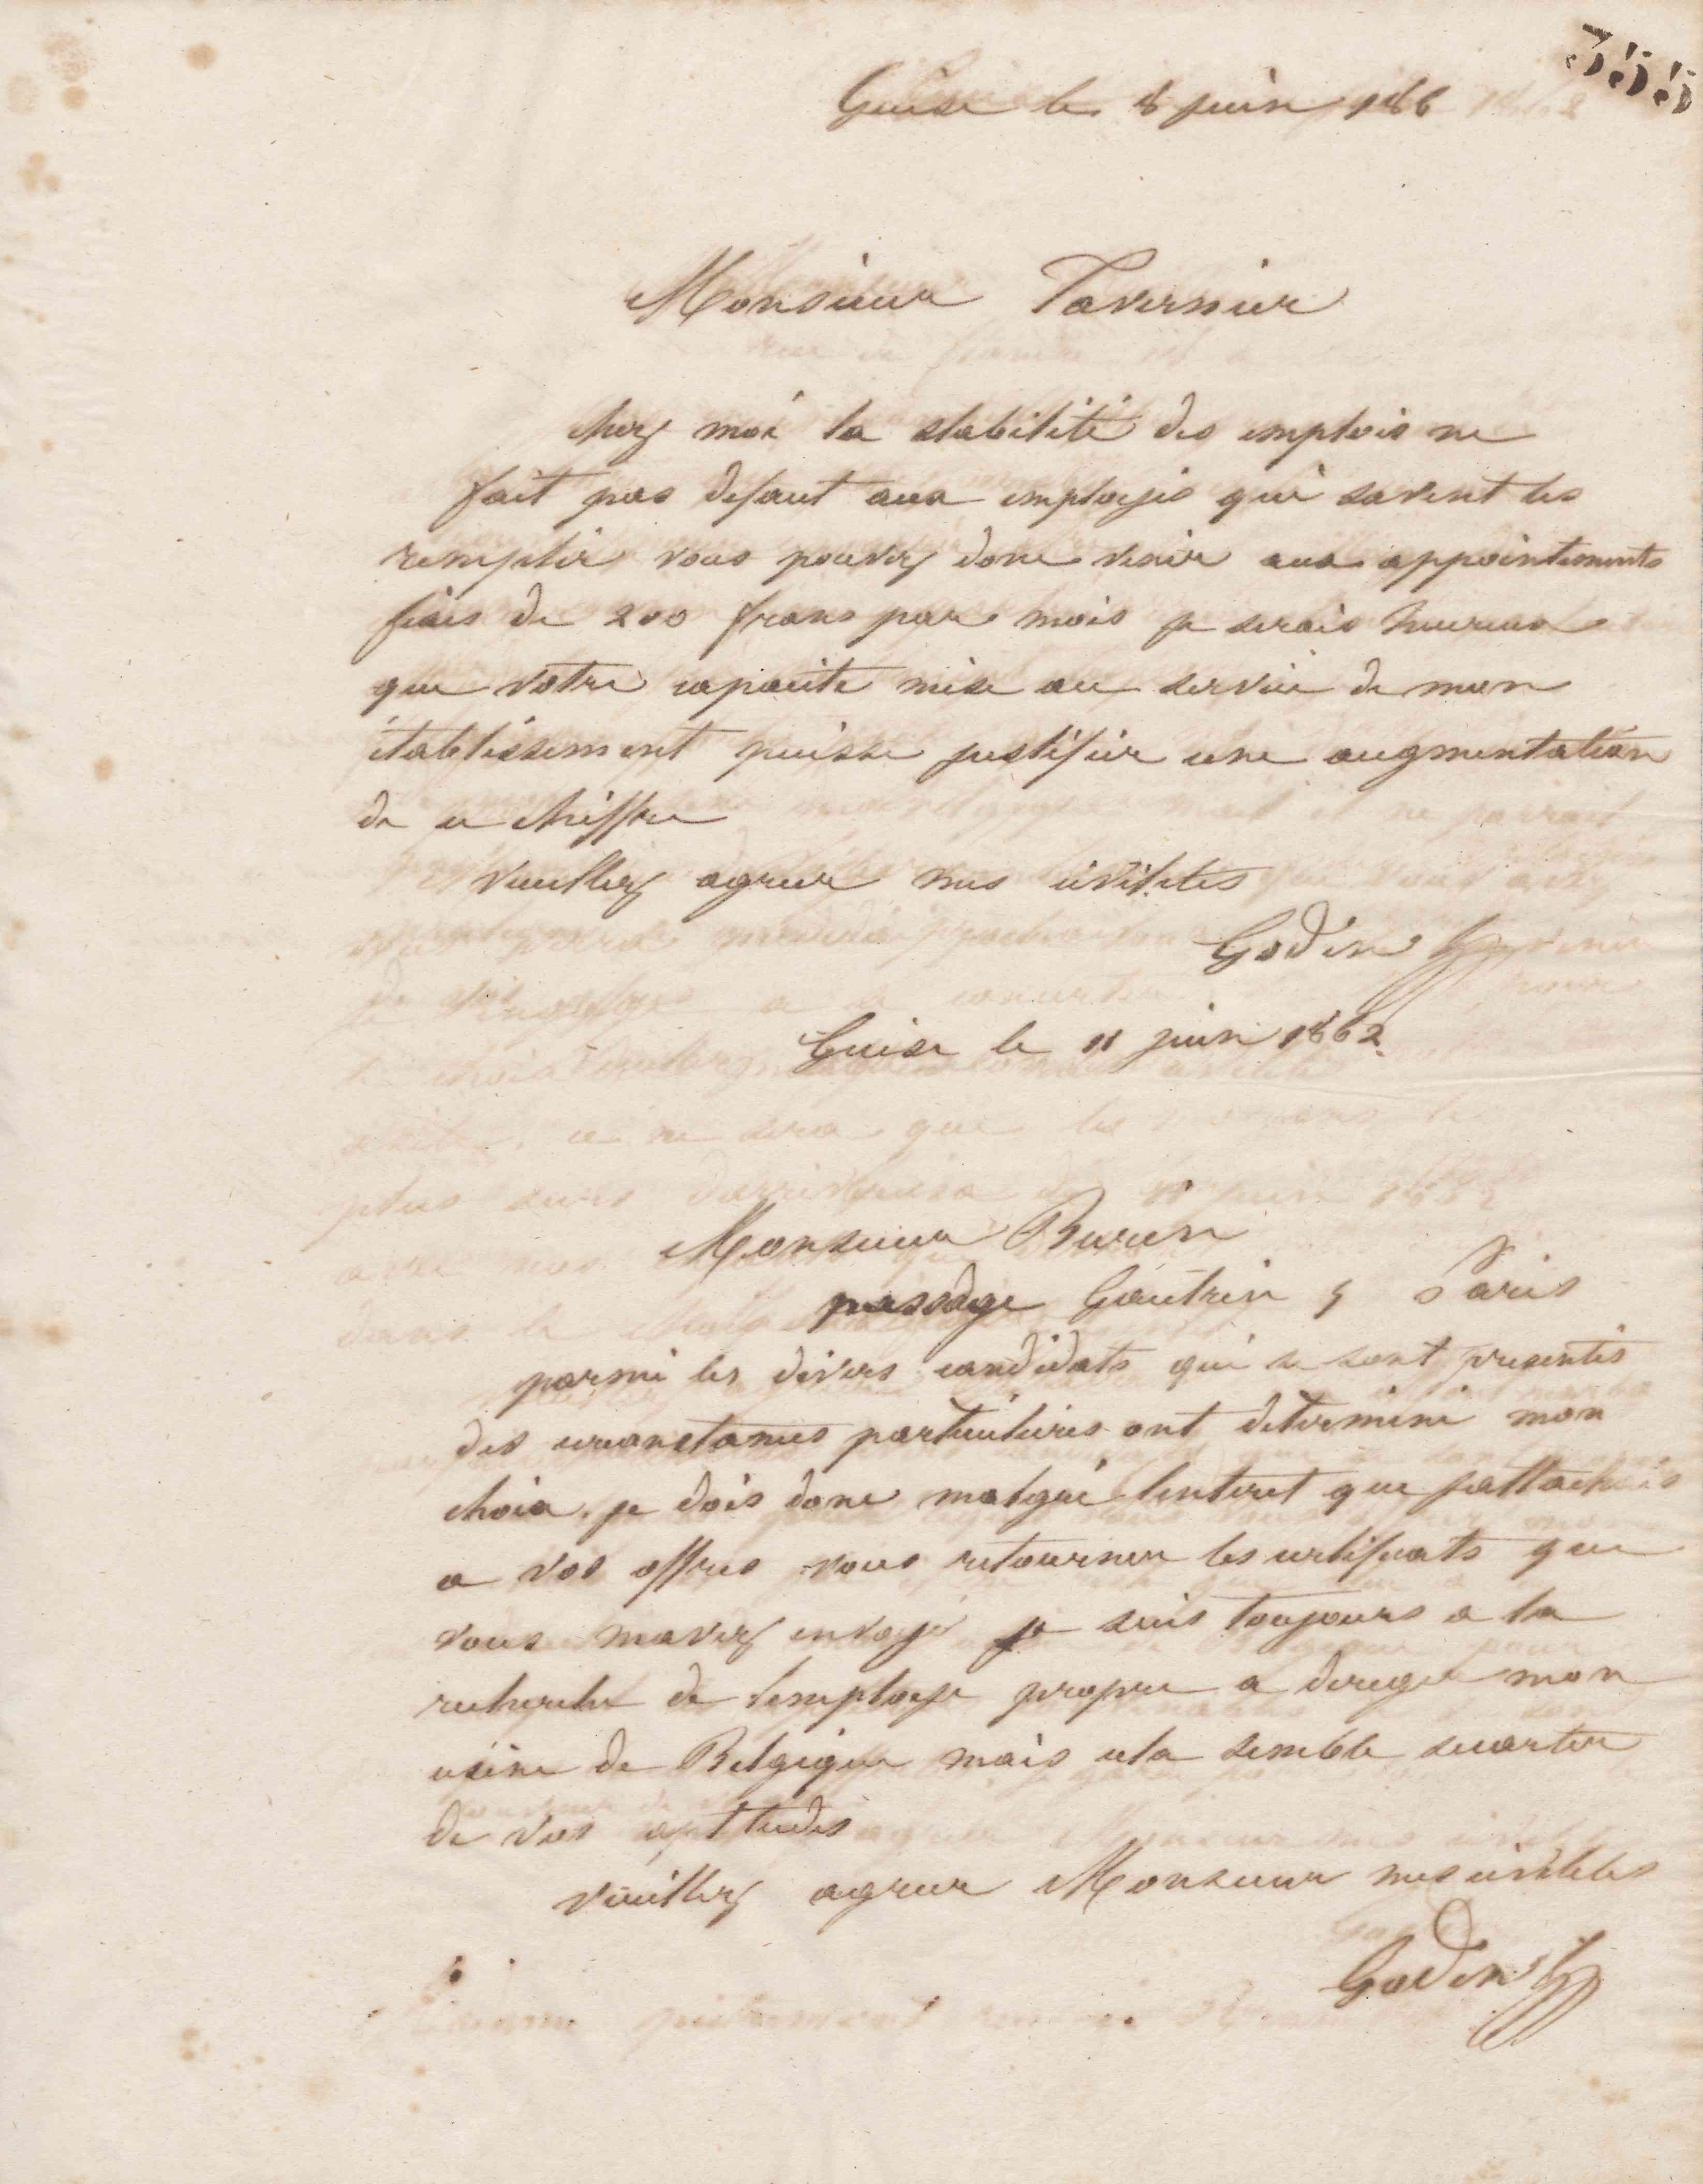 555
Guise le 8 juin 186
Monsieur Tavernier
chez moi la stabilité des emplois ne
fait pas defaut aux employés qui savent les
remplir vous pouvez donc venir aux appointements
fixes de 200 frans par mois je serais heureux
que votre capacite mise au service de mon
établissement puisse justifier une augmentation
de ce chiffre
veuillez agreer mes civilites
Godin
Guise le 11 juin 1862
Monsieur Buren
passage Gautrin 5 Paris
parmi les divers candidats qui se sont presentés
des circonstances particulieres ont determiné mon
choix. je dois donc malgré linteret que jattachais
a vos offres vous retourner les certificats que
vous mavez envoyé je suis toujours a la
recherche de lemploye propre a diriger mon
usine de Belgique mais cela semble secarter
de vos aptitudes
veuillez agreer Monsieur mes civilites
Godin